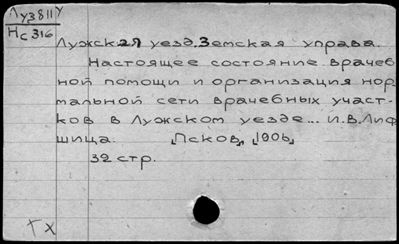 Лу3811У
Нс316
Лужская уезд. Земская управа.
Настоящее состояние врачеб
ной помощи и организация нор-
мальной сети врачебных участ-
ков в Лужском уезде... И.В.Лиф
шица. [Псков, 1906]
32 стр.
Гх